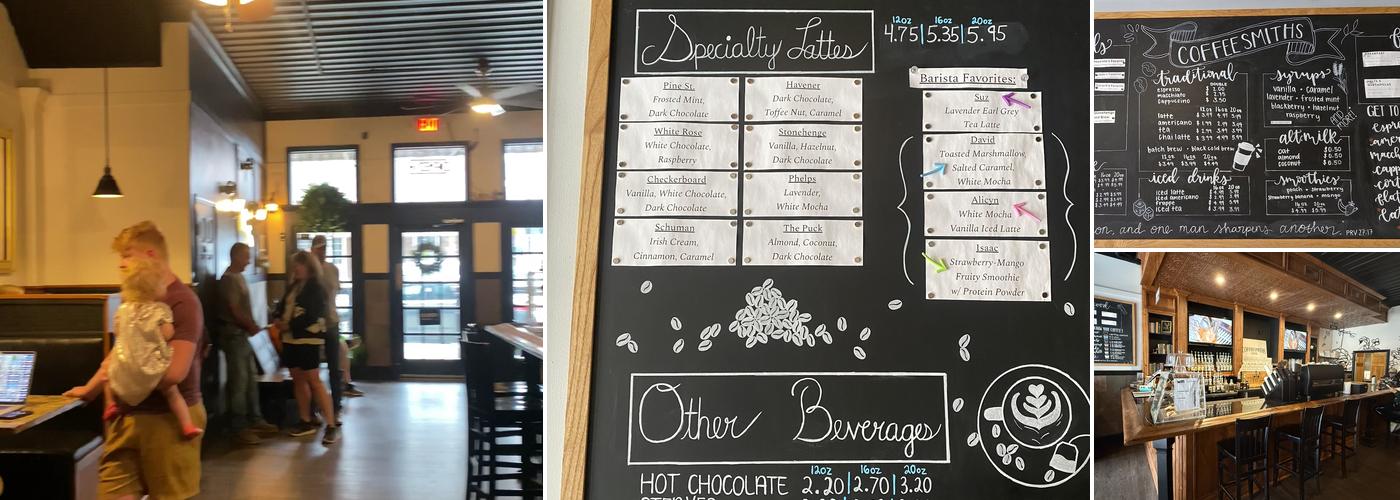 EXIT
Specialty Lattes
12oz 16oz 20oz
4.75 | 5.35 | 5.95
Pine St.
Frosted Mint,
Dark Chocolate
Havener
Dark Chocolate,
Toffee Nut, Caramel
White Rose
White Chocolate,
Raspberry
Stonehenge
Vanilla, Hazelnut,
Dark Chocolate
Checkerboard
Vanilla, White Chocolate,
Dark Chocolate
Phelps
Lavender,
White Mocha
Schuman
Irish Cream,
Cinnamon, Caramel
The Puck
Almond, Coconut,
Dark Chocolate
Barista Favorites:
Suz
Lavender Earl Grey
Tea Latte
David
Toasted Marshmallow,
Salted Caramel,
White Mocha
Alicyn
White Mocha
Vanilla Iced Latte
Isaac
Strawberry-Mango
Fruity Smoothie
w/ Protein Powder
Other Beverages
12oz 16oz 20oz
HOT CHOCOLATE 2.20 | 2.70 | 3.20
COFFEESMITHS
traditional
espresso
macchiato
cappuccino
12oz 16oz 20oz
latte
americano
tea
chai latte
batch brew • black cold brew
iced drinks
iced latte
iced americano
frappe
iced tea
syrups
vanilla • caramel
lavender • frosted mint
blackberry • hazelnut
raspberry
alt milk
oat $0.50
almond $0.50
coconut $0.50
smoothies
peach • strawberry
strawberry banana • mango
on, and one man sharpens another. PRV 27:17